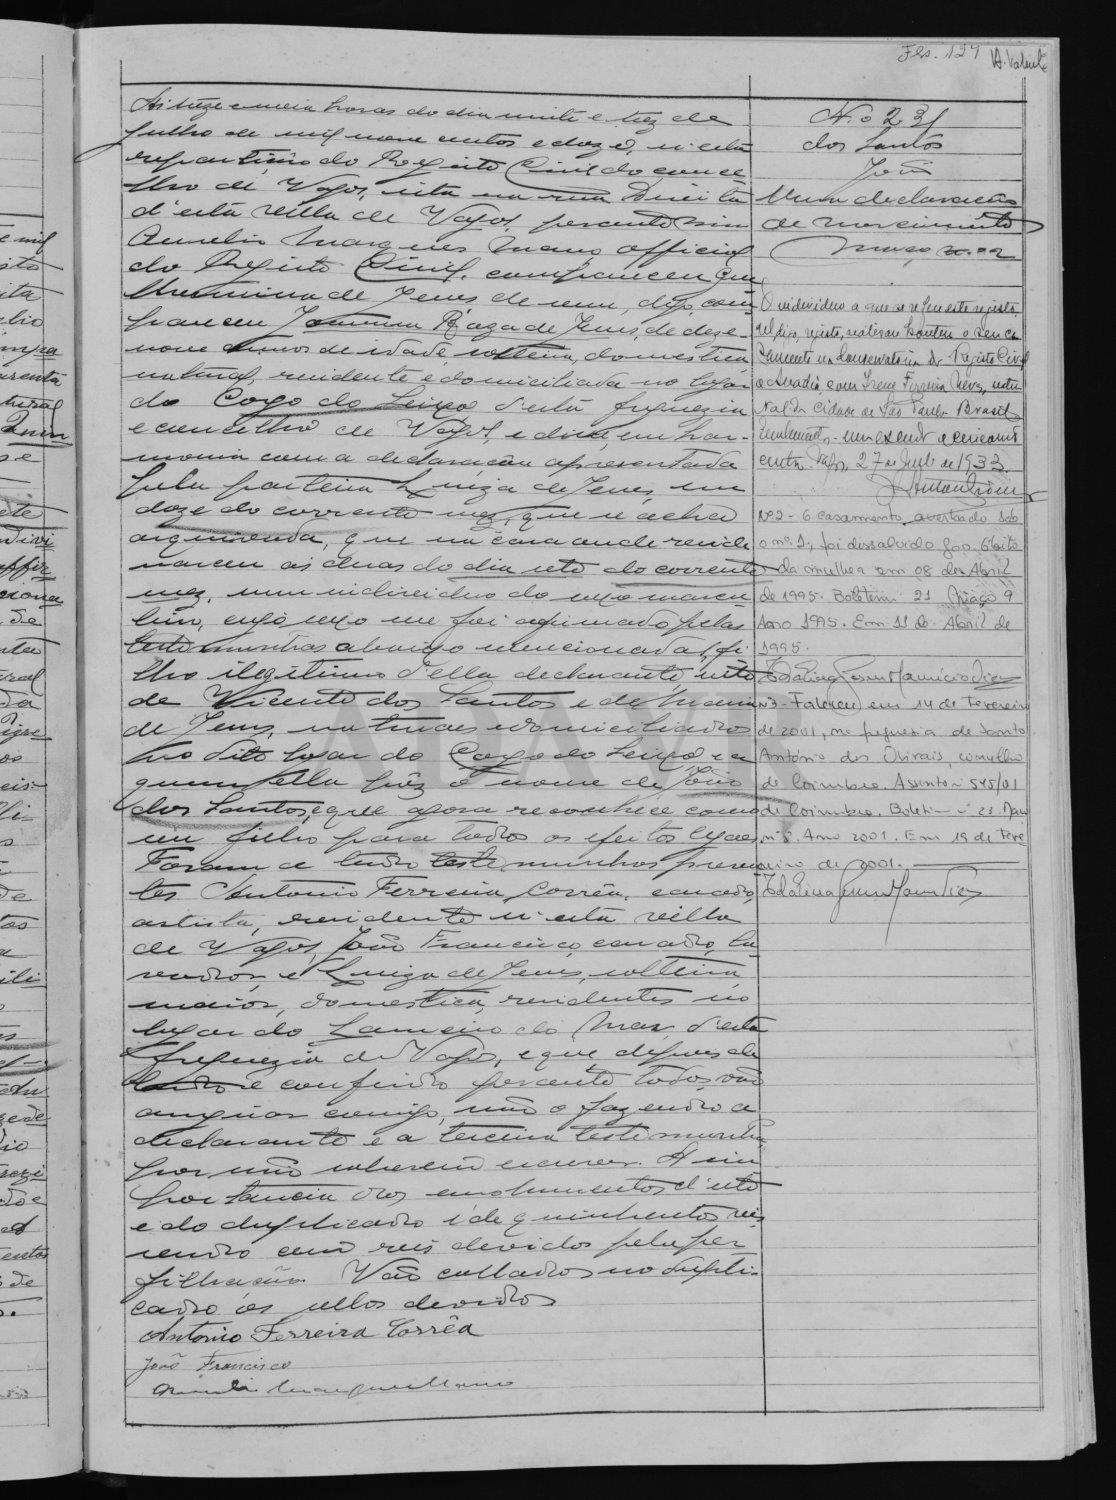 Fls. 127 A. Valente
Ás treze e meia horas do dia vinte e trez de
Julho de mil nove centos e doze, n'esta
repartição do Registo Civil do conce
lho de Vagos, sita na rua Direita
d'esta villa de Vagos, perante mim
Aurelio Marques Mano official
do Registo Civil, compareceu
de Jesus digo, com
pareceu Joanna Raza de Jesus, de deze
nove annos de idade solteira, domestica
natural, residente e domiciliada no logar
do Corgo do Seixo d'esta freguezia
e concelho de Vagos, e disse, em har-
monia com a declaração apresentada
pela parteira Luiza de Jesus, em
doze do corrente mez, que se acha
arquivada, que na casa onde reside
nasceu ás duas do dia sete do corrente
mez, um individuo do sexo mascu
lino, cujo sexo me foi afirmado pelas
testemunhas abaixo mencionadas, fi
lho ilegitimo d'ella declarante, neto
de Vicente dos Santos e de Maria
de Jesus, naturaes e domiciliados
no dito logar do Corgo do Seixo e a
quem ella pôz o nome de João
dos Santos, e que agora reconhece como
seu filho para todos os efeitos legaes.
Foram a tudo testemunhas presen
tes Antonio Ferreira Corrêa, casado,
artista, residente n'esta villa
de Vagos, João Francisco, casado, la
vrador, e Luiza de Jesus, solteira,
maior, domestica, residentes no
logar do Lameiro do Mar d'esta
freguezia de Vagos, e que depois de
lido e conferido perante todos, vão
assignar comigo, não o fazendo a
declarante e a terceira testemunha
por não saberem escrever. A im
portancia dos emolumentos d'este
e do duplicado é de quinhentos reis
sendo cem reis devidos pela per
filhação. Vão collados no dupli-
cado os sellos devidos
Antonio Ferreira Corrêa
João Francisco
Aurelio Marques Mano
N.º 231
dos Santos
João
Uma declaração
de nascimento
O individuo a que se refere este registo,
digo, registo, realisou hontem o seu ca
samento na Conservatória do Registo Civil
de Anadia, com Irene Ferreira Neves, natu
ral da Cidade de São Paulo Brasil
Emolumentos - um escudo e cincoenta
centavos. Vagos, 27 de de 1933.
Nº2 - O casamento averbado sob
o nº 1, foi dissolvido por óbito
da mulher em 08 de Abril
de 1995. Boletim 21 Maço 9
Ano 1995. Em 11 de Abril de
1995.
Nº3 - Faleceu em 14 de Fevereiro
de 2001, na freguesia de Santo
António dos Olivais, concelho
de Coimbra. Assento nº 545/01
de Coimbra. Boletim nº 23 Maço
nº 8. Ano 2001. Em 19 de Feve
reiro de 2001.